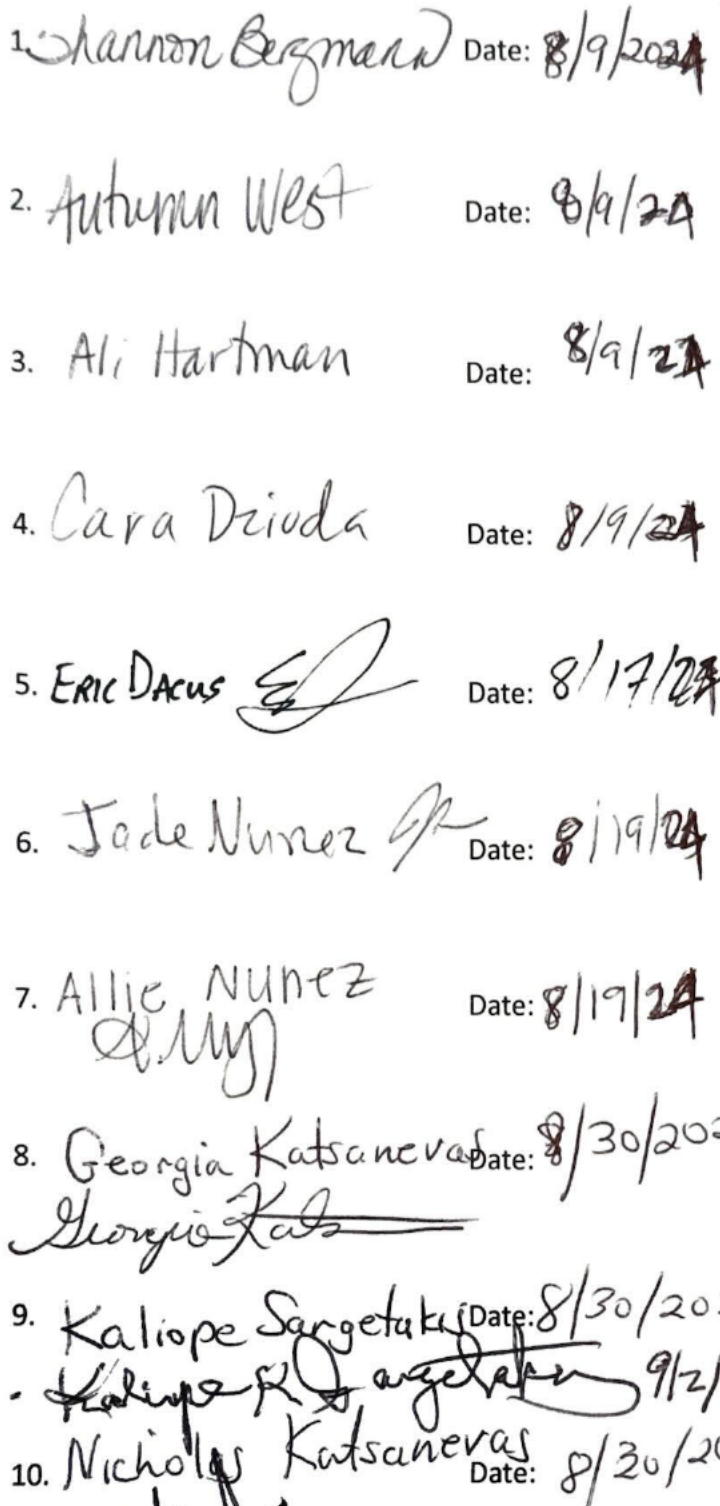 1. Shannon Bergmann Date: 8/9/2024
2. Autumn West Date: 8/9/24
3. Ali Hartman Date: 8/9/24
4. Cara Dziuda Date: 8/9/24
5. ERIC DACUS Date: 8/17/24
6. Jade Nunez Date: 8/19/24
7. Allie Nunez Date: 8/19/24
8. Georgia Katsanevas Date: 8/30/202
Georgia Kats
9. Kaliope Sargetakis Date: 8/30/20
Kaliope K Sargetakis 9/2/
10. Nicholas Katsanevas Date: 8/30/20